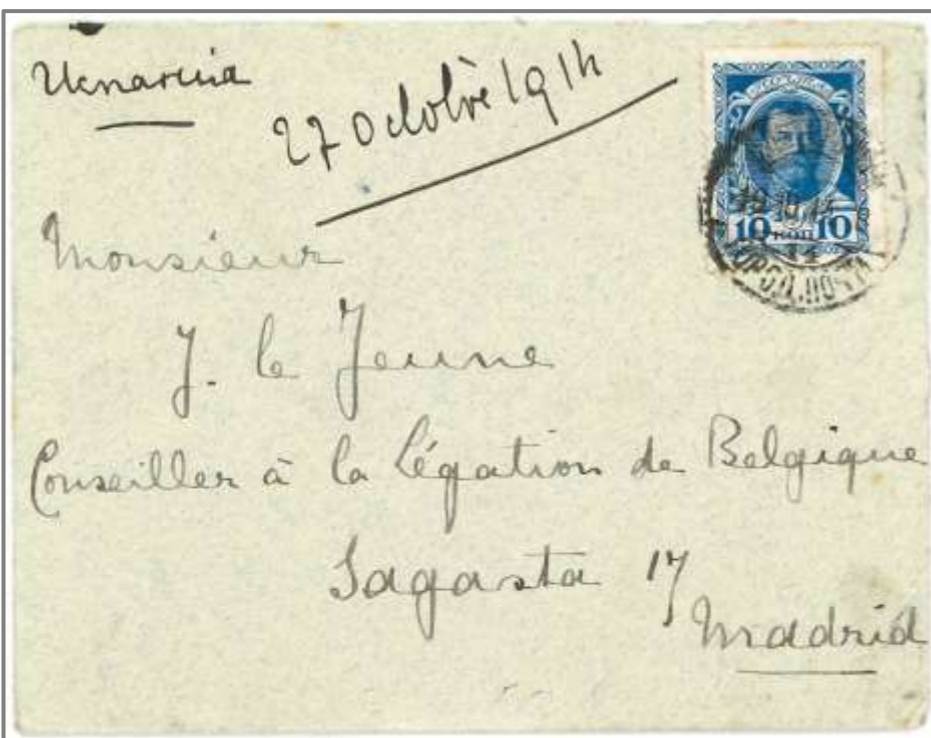 Испания
27 octobre 1914
10 КОП 10
Monsieur
J. le Jeune
Conseiller à la Légation de Belgique
Sagasta 17
Madrid